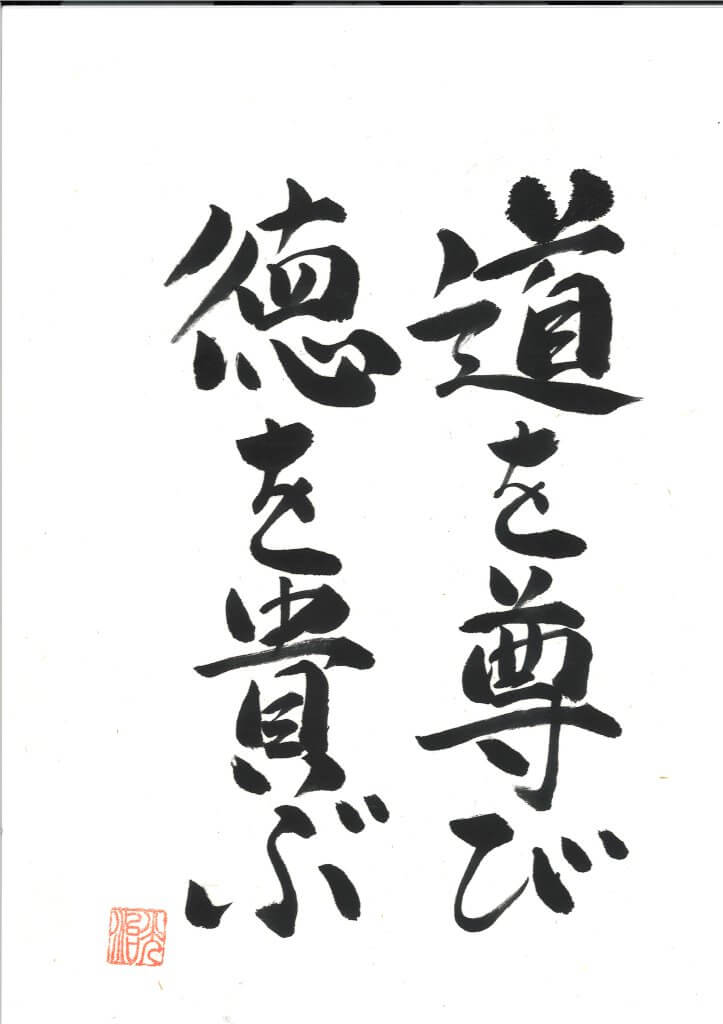 道を尊び
徳を貴ぶ